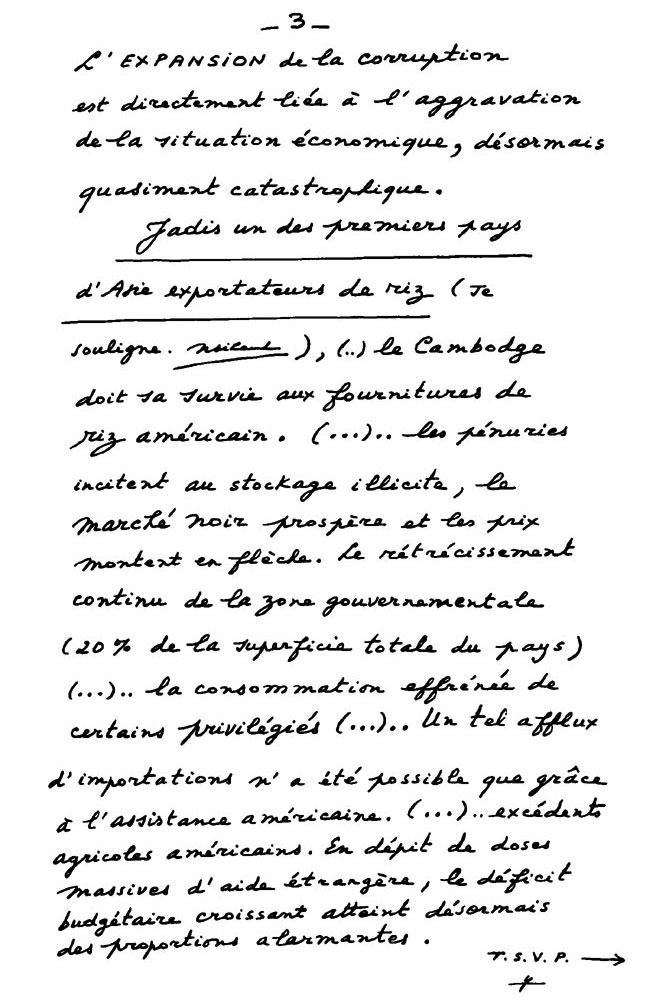 - 3 -
L' EXPANSION de la corruption
est directement liée à l'aggravation
de la situation économique, désormais
quasiment catastrophique.
Jadis un des premiers pays
d'Asie exportateurs de riz (Je
souligne. ), (..) le Cambodge
doit sa survie aux fournitures de
riz américain. (...).. les pénuries
incitent au stockage illicite, le
marché noir prospère et les prix
montent en flèche. Le rétrécissement
continu de la zone gouvernementale
(20 % de la superficie totale du pays)
(...).. la consommation effrénée de
certains privilégiés (...).. Un tel afflux
d'importations n'a été possible que grâce
à l'assistance américaine. (...).. excédents
agricoles américains. En dépit de doses
massives d'aide étrangère, le déficit
budgétaire croissant atteint désormais
des proportions alarmantes.
T.S.V.P. →